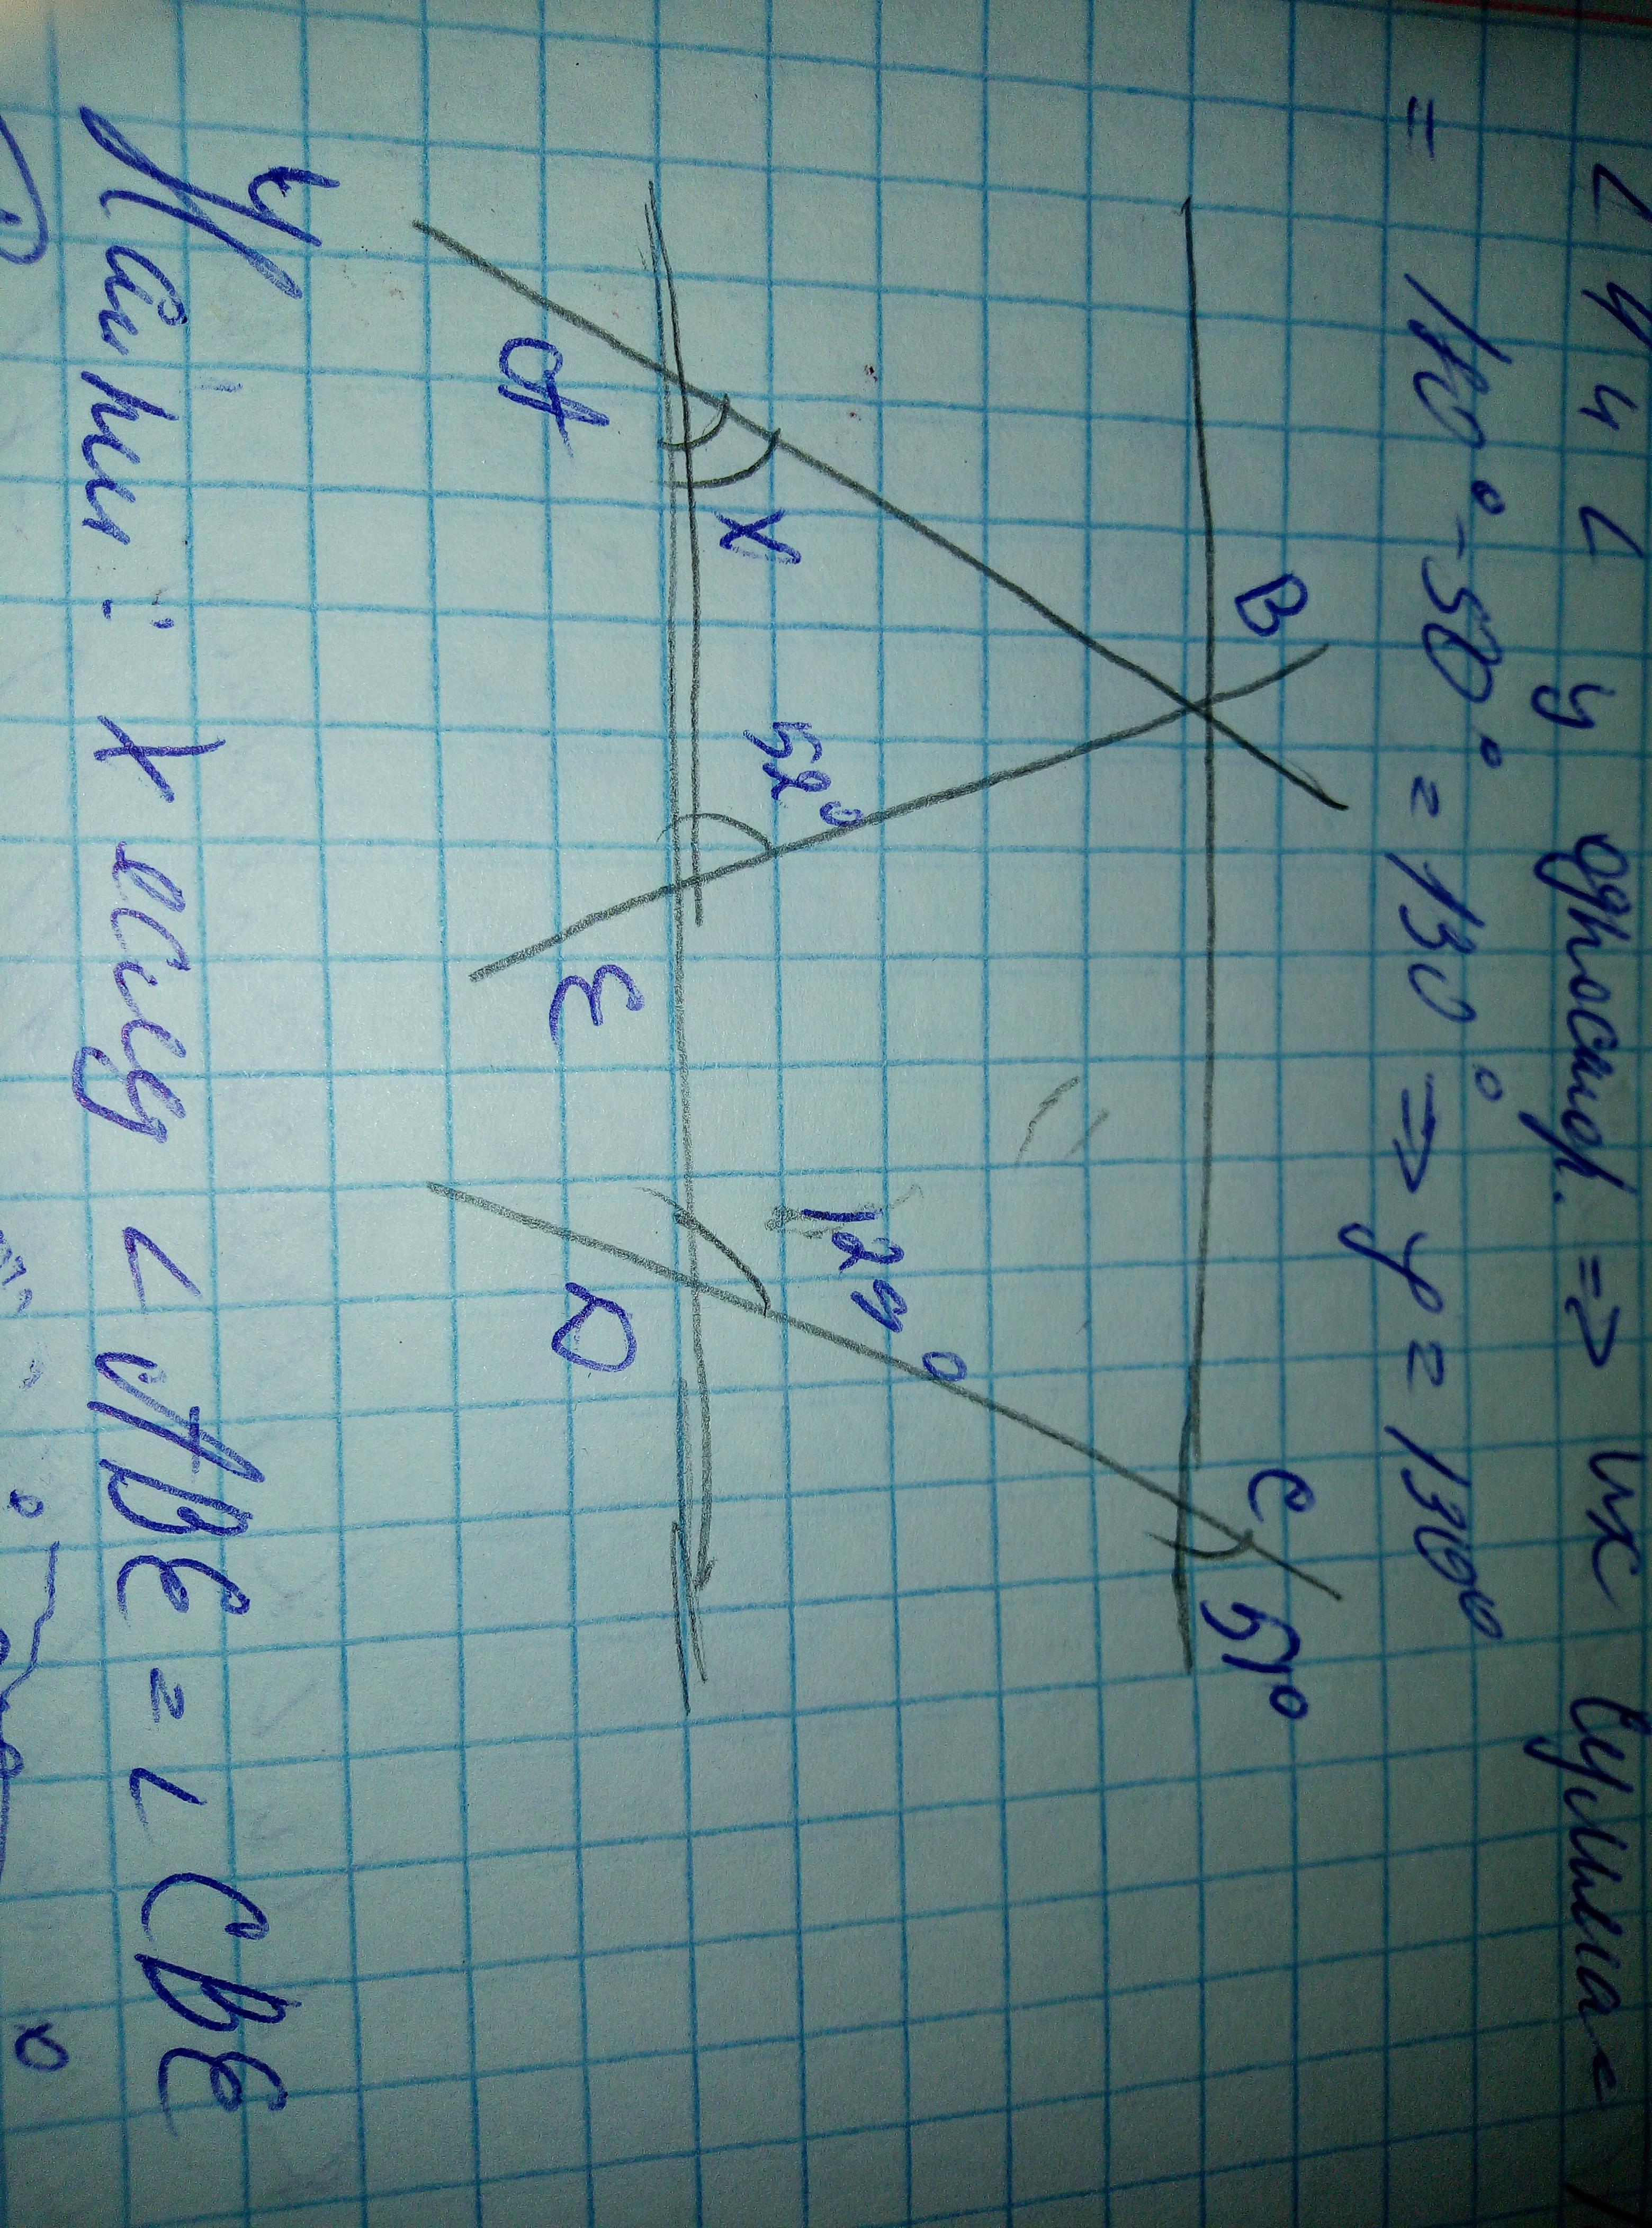 ∠ 4 и ∠ у одност. => их сумма
= 180° - 50° = 130° => у = 130°
B
C
51°
X
52°
129°
A
E
D
4
Найти: X если ∠ ABE = ∠ CBE